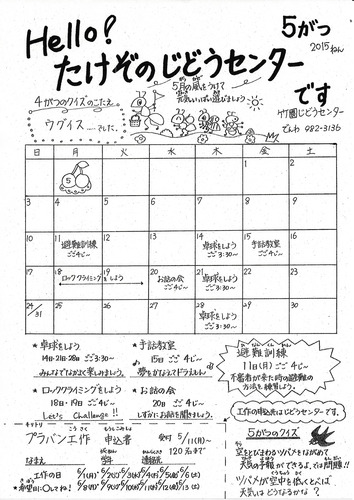 Hello!
5がつ
2015ねん
たけぞのじどうセンター
です
5月の風をうけて
元気いっぱい遊びましょう
4がつのクイズのこたえ
ウグイス……でした。
竹園じどうセンター
でんわ 982-3136
日 月 火 水 木 金 土
1 2
5
3 4 5 6 7 8 9
10 11 12 13 14 15 16
避難訓練
ごご4じ〜
卓球をしよう
ごご3:30〜
手話教室
ごご4じ〜
17 18 19 20 21 22 23
ロッククライミングをしよう
ごご4じ〜
お話の会
ごご4じ〜
卓球をしよう
ごご3:30〜
24/31 25 26 27 28 29 30
卓球をしよう
ごご3:30〜
★卓球をしよう
14日・21日・28日 ごご3:30〜
みんなでなかよく楽しみましょう。
★手話教室
15日 ごご4じ〜
夢をかなえてドラえもん
★ロッククライミングをしよう
18日・19日 ごご4じ〜
Let's Challenge!!
★お話の会
20日 ごご4じ〜
しずかにお話を聞きましょう。
避難訓練
11日(月) ごご4じ〜
不審者が来た時の避難の
方法を練習しよう。
工作の申込先はじどうセンターです。
キリトリ
プラバン工作 申込書
受付 5/11(月)〜
120名まで
なまえ
学年
連絡先
★工作の日
★希望日に○してね!
5がつのクイズ
空をとびまわるツバメをながめて
天気の予報ができる、では問題!!
ツバメが空中を低くとんでは
天気がどうなるかな?